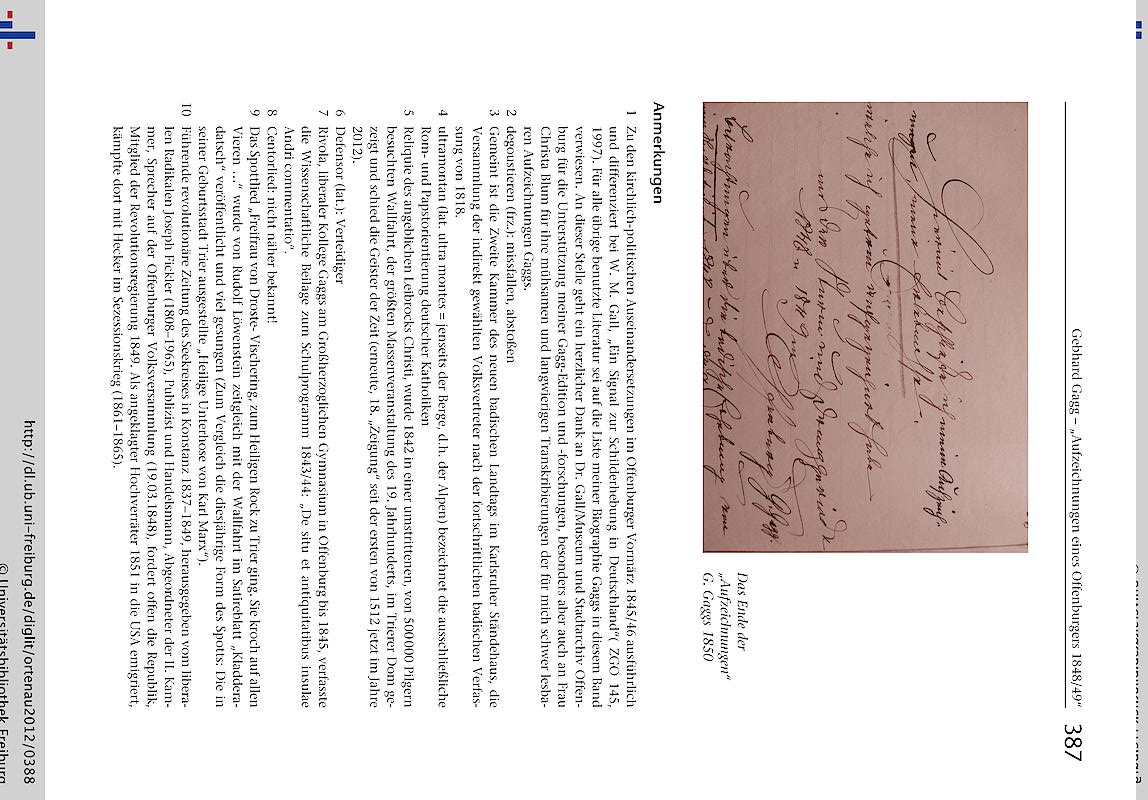 Gebhard Gagg – „Aufzeichnungen eines Offenburgers 1848/49“ 387
Das Ende der
„Aufzeichnungen“
G. Gaggs 1850
Anmerkungen
1 Zu den kirchlich-politischen Auseinandersetzungen im Offenburger Vormärz 1845/46 ausführlich
und differenziert bei W. M. Gall, „Ein Signal zur Schilderhebung in Deutschland“( ZGO 145,
1997). Für alle übrige benutzte Literatur sei auf die Liste meiner Biographie Gaggs in diesem Band
verwiesen. An dieser Stelle geht ein herzlicher Dank an Dr. Gall/Museum und Stadtarchiv Offen-
burg für die Unterstützung meiner Gagg-Edition und -forschungen, besonders aber auch an Frau
Christa Blum für ihre mühsamen und langwierigen Transkribierungen der für mich schwer lesba-
ren Aufzeichnungen Gaggs.
2 degoustieren (frz.): missfallen, abstoßen
3 Gemeint ist die Zweite Kammer des neuen badischen Landtags im Karlsruher Ständehaus, die
Versammlung der indirekt gewählten Volksvertreter nach der fortschrittlichen badischen Verfas-
sung von 1818.
4 ultramontan (lat. ultra montes = jenseits der Berge, d.h. der Alpen) bezeichnet die ausschließliche
Rom- und Papstorientierung deutscher Katholiken
5 Reliquie des angeblichen Leibrocks Christi, wurde 1842 in einer umstrittenen, von 500 000 Pilgern
besuchten Wallfahrt, der größten Massenveranstaltung des 19. Jahrhunderts, im Trierer Dom ge-
zeigt und schied die Geister der Zeit (erneute, 18. „Zeigung“ seit der ersten von 1512 jetzt im Jahre
2012).
6 Defensor (lat.): Verteidiger
7 Rivola, liberaler Kollege Gaggs am Großherzoglichen Gymnasium in Offenburg bis 1845, verfasste
die Wissenschaftliche Beilage zum Schulprogramm 1843/44: „De situ et antiquitatibus insulae
Andri commentatio“.
8 Centorlied: nicht näher bekannt!
9 Das Spottlied „Freifrau von Droste- Vischering, zum Heiligen Rock zu Trier ging. Sie kroch auf allen
Vieren ...“ wurde von Rudolf Löwenstein zeitgleich mit der Wallfahrt im Satireblatt „Kladdera-
datsch“ veröffentlicht und viel gesungen (Zum Vergleich die diesjährige Form des Spotts: Die in
seiner Geburtsstadt Trier ausgestellte „Heilige Unterhose von Karl Marx“).
10 Führende revolutionäre Zeitung des Seekreises in Konstanz 1837–1849, herausgegeben vom libera-
len Radikalen Joseph Fickler (1808–1965), Publizist und Handelsmann, Abgeordneter der II. Kam-
mer, Sprecher auf der Offenburger Volksversammlung (19.03.1848), fordert offen die Republik,
Mitglied der Revolutionsregierung 1849. Als angeklagter Hochverräter 1851 in die USA emigriert,
kämpfte dort mit Hecker im Sezessionskrieg (1861–1865).
http://dl.ub.uni-freiburg.de/diglit/ortenau2012/0388
© Universitätsbibliothek Freiburg